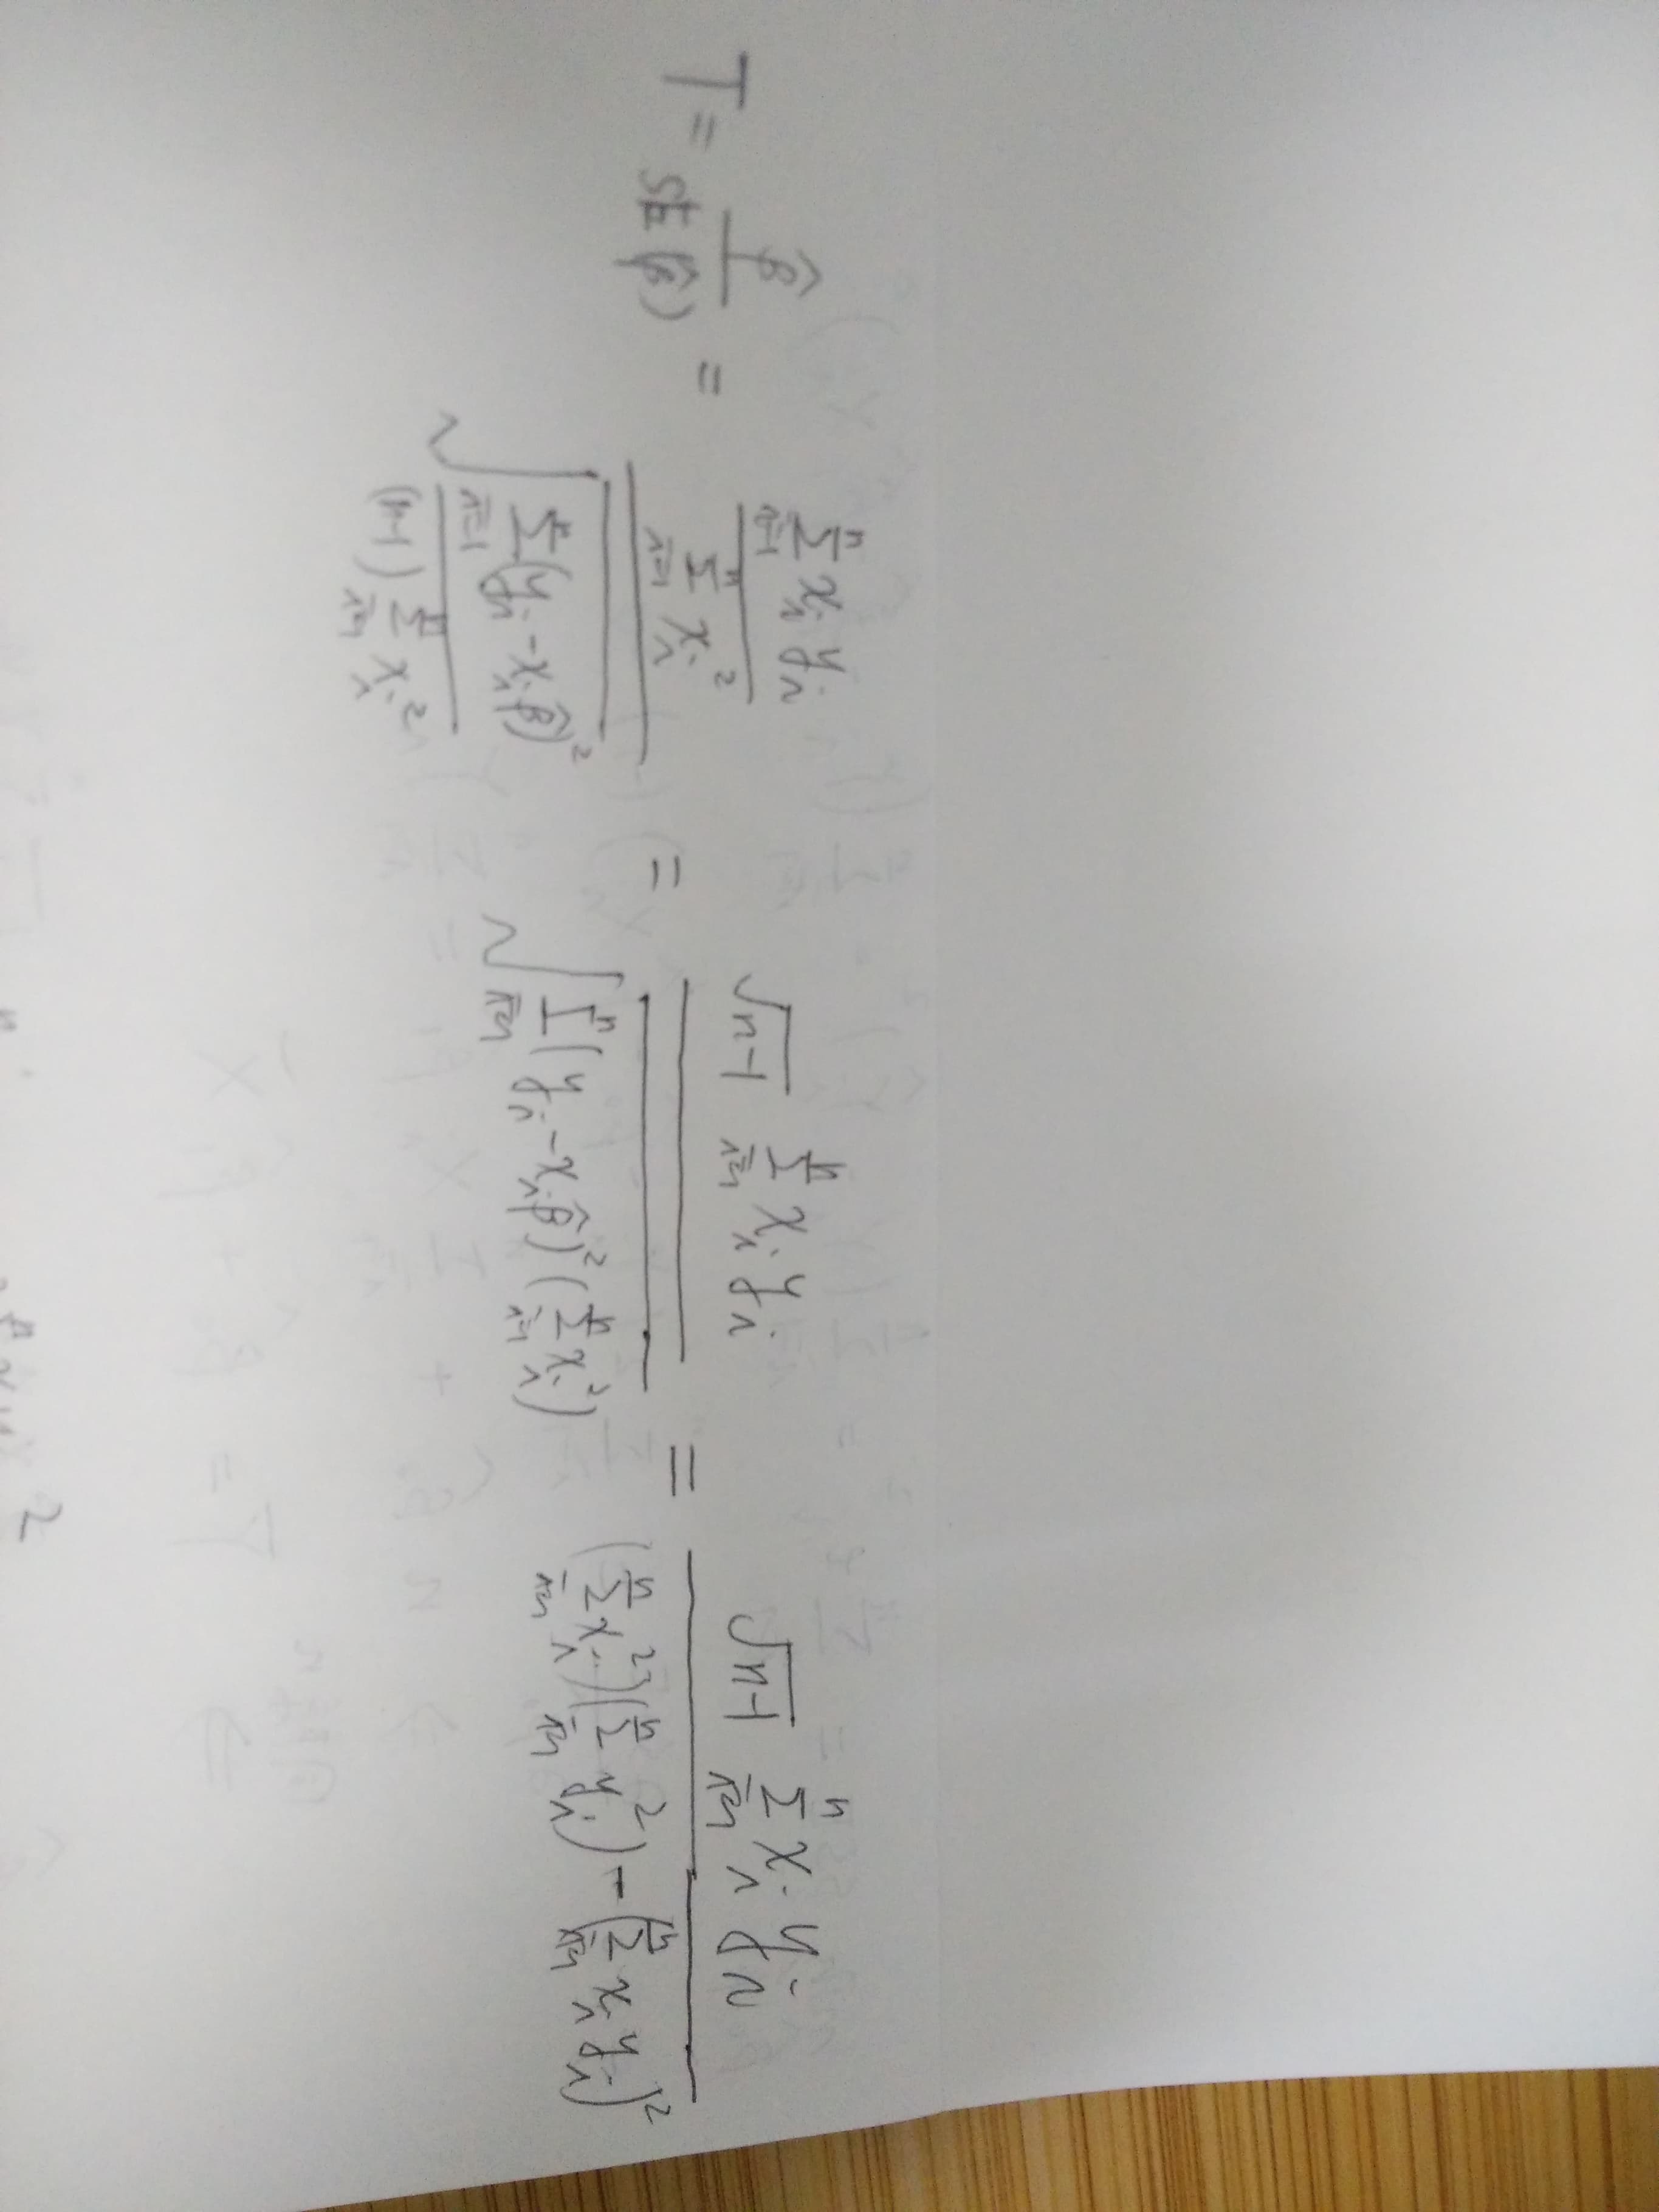 T = β̂ / SE(β̂) = (Σ_{i=1}^{n} x_i y_i / Σ_{i=1}^{n} x_i²) / √(Σ_{i=1}^{n} (y_i - x_i β̂)² / ((n-1) Σ_{i=1}^{n} x_i²)) = √(n-1) Σ_{i=1}^{n} x_i y_i / √(Σ_{i=1}^{n} (y_i - x_i β̂)² (Σ_{i=1}^{n} x_i²)) = √(n-1) Σ_{i=1}^{n} x_i y_i / (Σ_{i=1}^{n} x_i²)(Σ_{i=1}^{n} y_i²) - (Σ_{i=1}^{n} x_i y_i)²